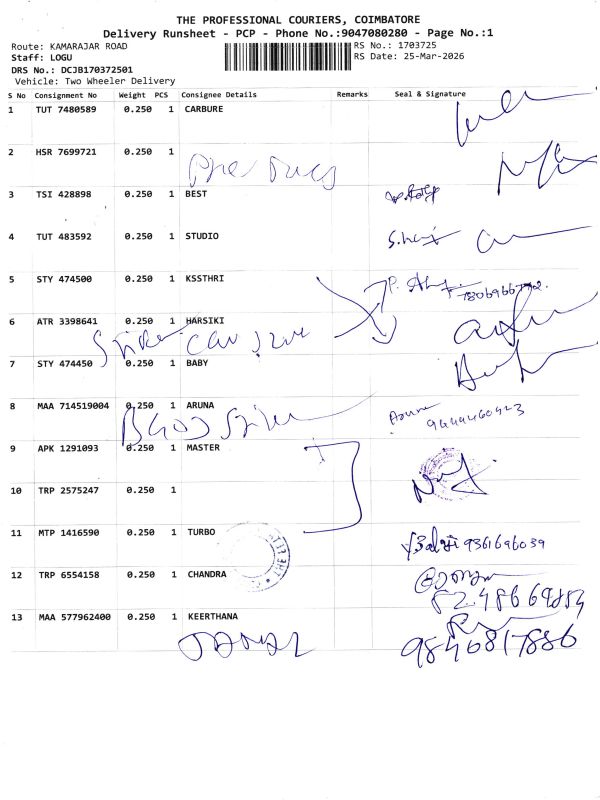 THE PROFESSIONAL COURIERS, COIMBATORE
Delivery Runsheet - PCP - Phone No.:9047080280 - Page No.:1
Route: KAMARAJAR ROAD
RS No.: 1703725
Staff: LOGU
RS Date: 25-Mar-2026
DRS No.: DCJB170372501
Vehicle: Two Wheeler Delivery
S No Consignment No Weight PCS Consignee Details Remarks Seal & Signature
1 TUT 7480589 0.250 1 CARBURE
2 HSR 7699721 0.250 1
3 TSI 428898 0.250 1 BEST
4 TUT 483592 0.250 1 STUDIO
5 STY 474500 0.250 1 KSSTHRI
6 ATR 3398641 0.250 1 HARSIKI
7 STY 474450 0.250 1 BABY
8 MAA 714519004 0.250 1 ARUNA
9 APK 1291093 0.250 1 MASTER
10 TRP 2575247 0.250 1
11 MTP 1416590 0.250 1 TURBO
9361696039
12 TRP 6554158 0.250 1 CHANDRA
13 MAA 577962400 0.250 1 KEERTHANA
9846817886